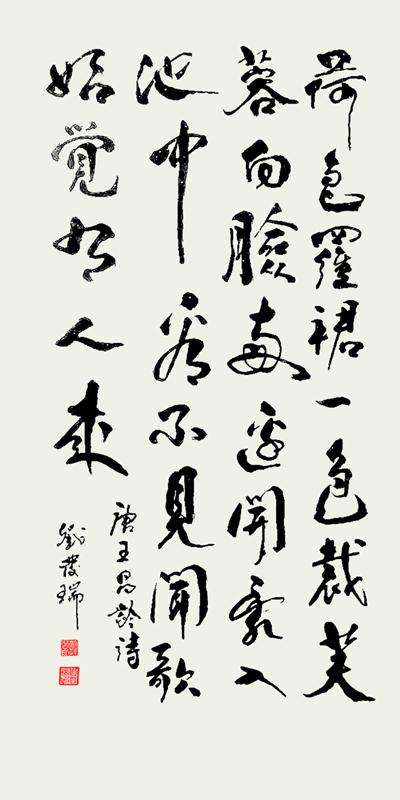 荷色羅裙一色裁芙
蓉向臉兩邊開亂入
池中看不見聞歌
始覚有人來
唐王昌齡詩
劉發瑞